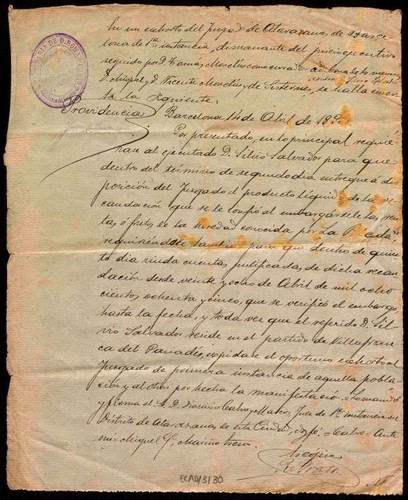 En un exhorto del Juzgado de Atarazanas de Barce
lona de 1ª instancia, dimanante del pleito ejecutivo
seguido por D. Tomás
D. Miguel y D. Vicente de Sisternes, se halla
la siguiente.
Providencia Barcelona 14 Obre de 188
Por presentado, en lo principal requie
ran al ejecutado D. Silvio Salvador para que
dentro del término de segundo dia entregue á dis
posición del Juzgado el producto líquido de la re
caudación que se le confió al embargársele las ren
tas ó frutos de la heredad conocida por La
requiriéndole tambien para que dentro de quin
to dia rinda cuentas justificadas de dicha recau
dación desde veinte y ocho de Abril de mil ocho
cientos ochenta y cinco, que se verificó el embargo,
hasta la fecha, y toda vez que el referido D. Sil
vio Salvador reside en el partido de Villafran
ca del Panadés, expídase el oportuno exhorto al
Juzgado de primera instancia de aquella pobla
ción y al Otrosí por hecha la manifestación. Lo mandó
y firma el S. D. Dionisio Calvo y Juez de 1ª instancia del
Distrito de Atarazanas de esta Ciudad, doy fé. Calvo. Ante
mi Miguel
ECAD/3/30